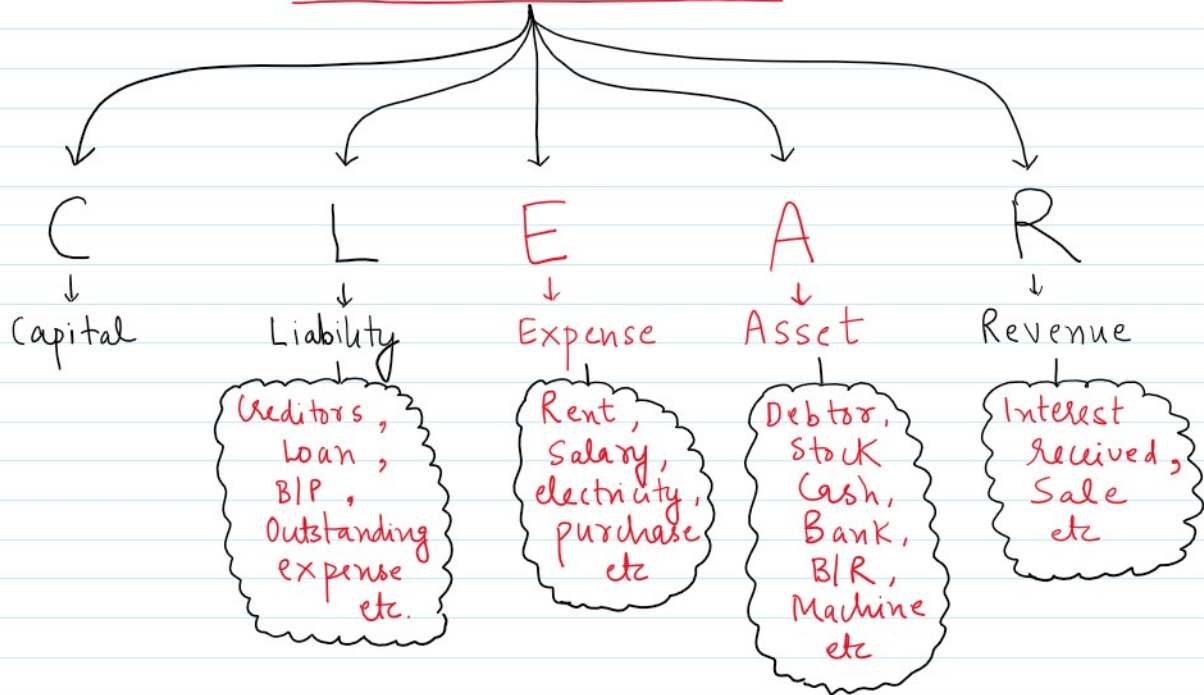 C L E A R
Capital Liability Expense Asset Revenue
Creditors,
Loan,
B/P,
Outstanding
expense
etc.
Rent,
Salary,
electricity,
purchase
etc
Debtor,
Stock
Cash,
Bank,
B/R,
Machine
etc
Interest
received,
Sale
etc